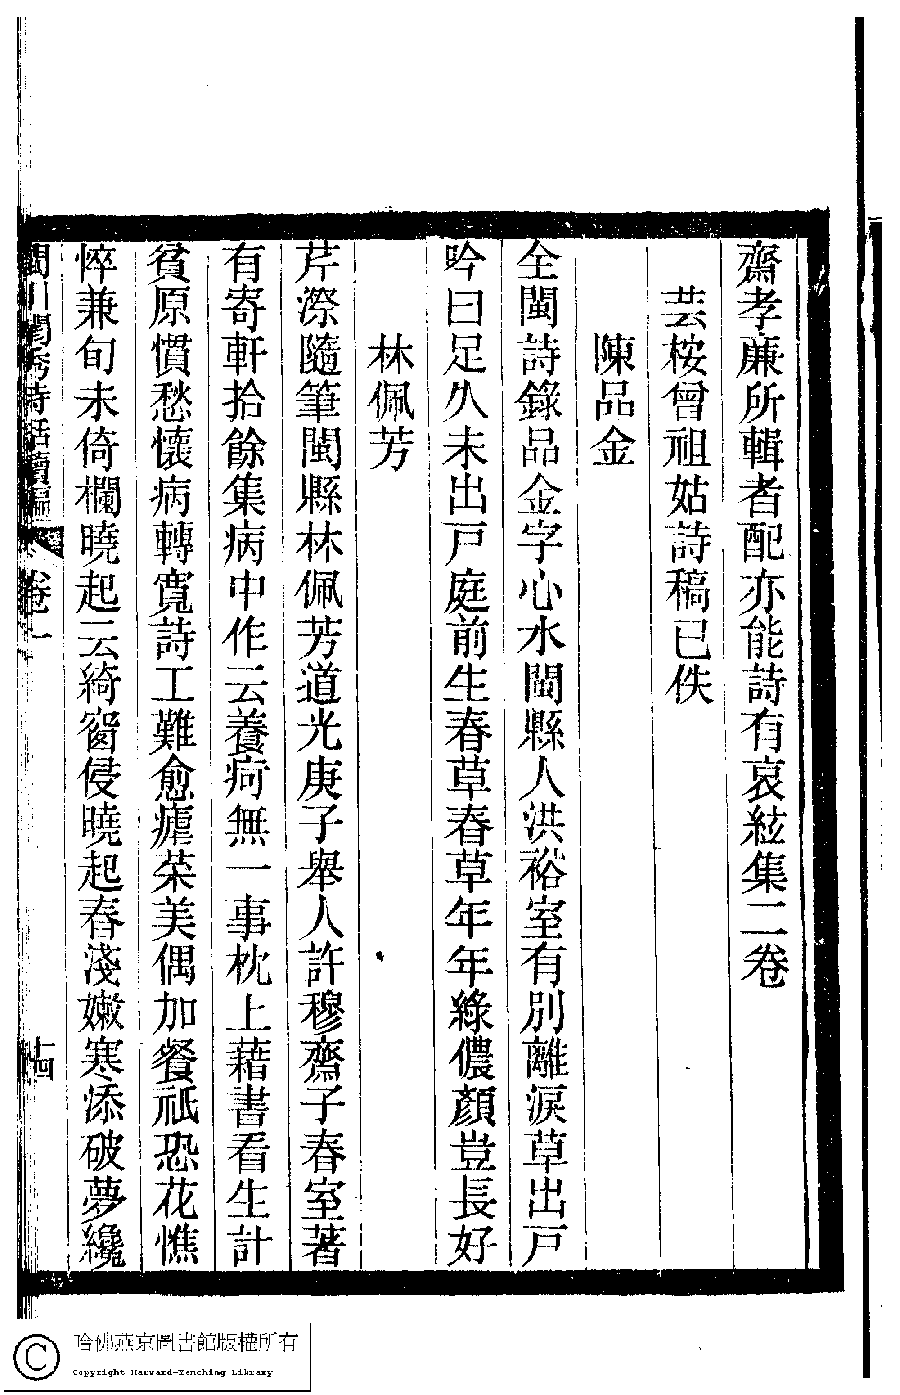 齋孝廉所輯者配亦能詩有哀絃集二卷
芸桉曾祖姑詩稿已佚
陳品金
全閩詩錄品金字心水閩縣人洪裕室有別離淚草出戸
吟曰足久未出戸庭前生春草春草年年綠儂顏豈長好
林佩芳
芹漈隨筆閩縣林佩芳道光庚子舉人許穆齋子春室著
有寄軒拾餘集病中作云養疴無一事枕上藉書看生計
貧原慣愁懷病轉寬詩工難愈瘧菜美偶加餐祇恐花憔
悴兼旬未倚欄曉起云綺窗侵曉起春淺嫩寒添破夢纔
閩川閨秀詩話續編 卷一 十四
哈佛燕京圖書館版權所有
Copyright Harvard-Yenching Library